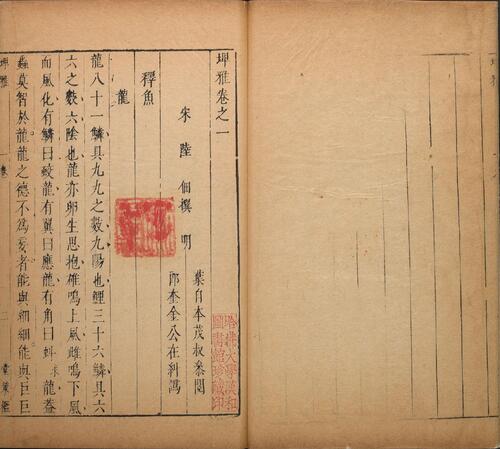 埤雅卷之一
宋 陸 佃 撰 明
葉自本茂叔參閱
郎奎金公在糾譌
釋魚
龍
龍八十一鱗具九九之數九陽也鯉三十六鱗具六
六之數六陰也龍亦卵生思抱雄鳴上風雌鳴下風
而風化有鱗曰蛟龍有翼曰應龍有角曰虯龍蓋
蟲莫智於龍龍之德不為妄者能與細細能與巨巨
埤雅 卷一 一 堂策檻
哈佛大學漢和
圖書館珍藏印
埤雅